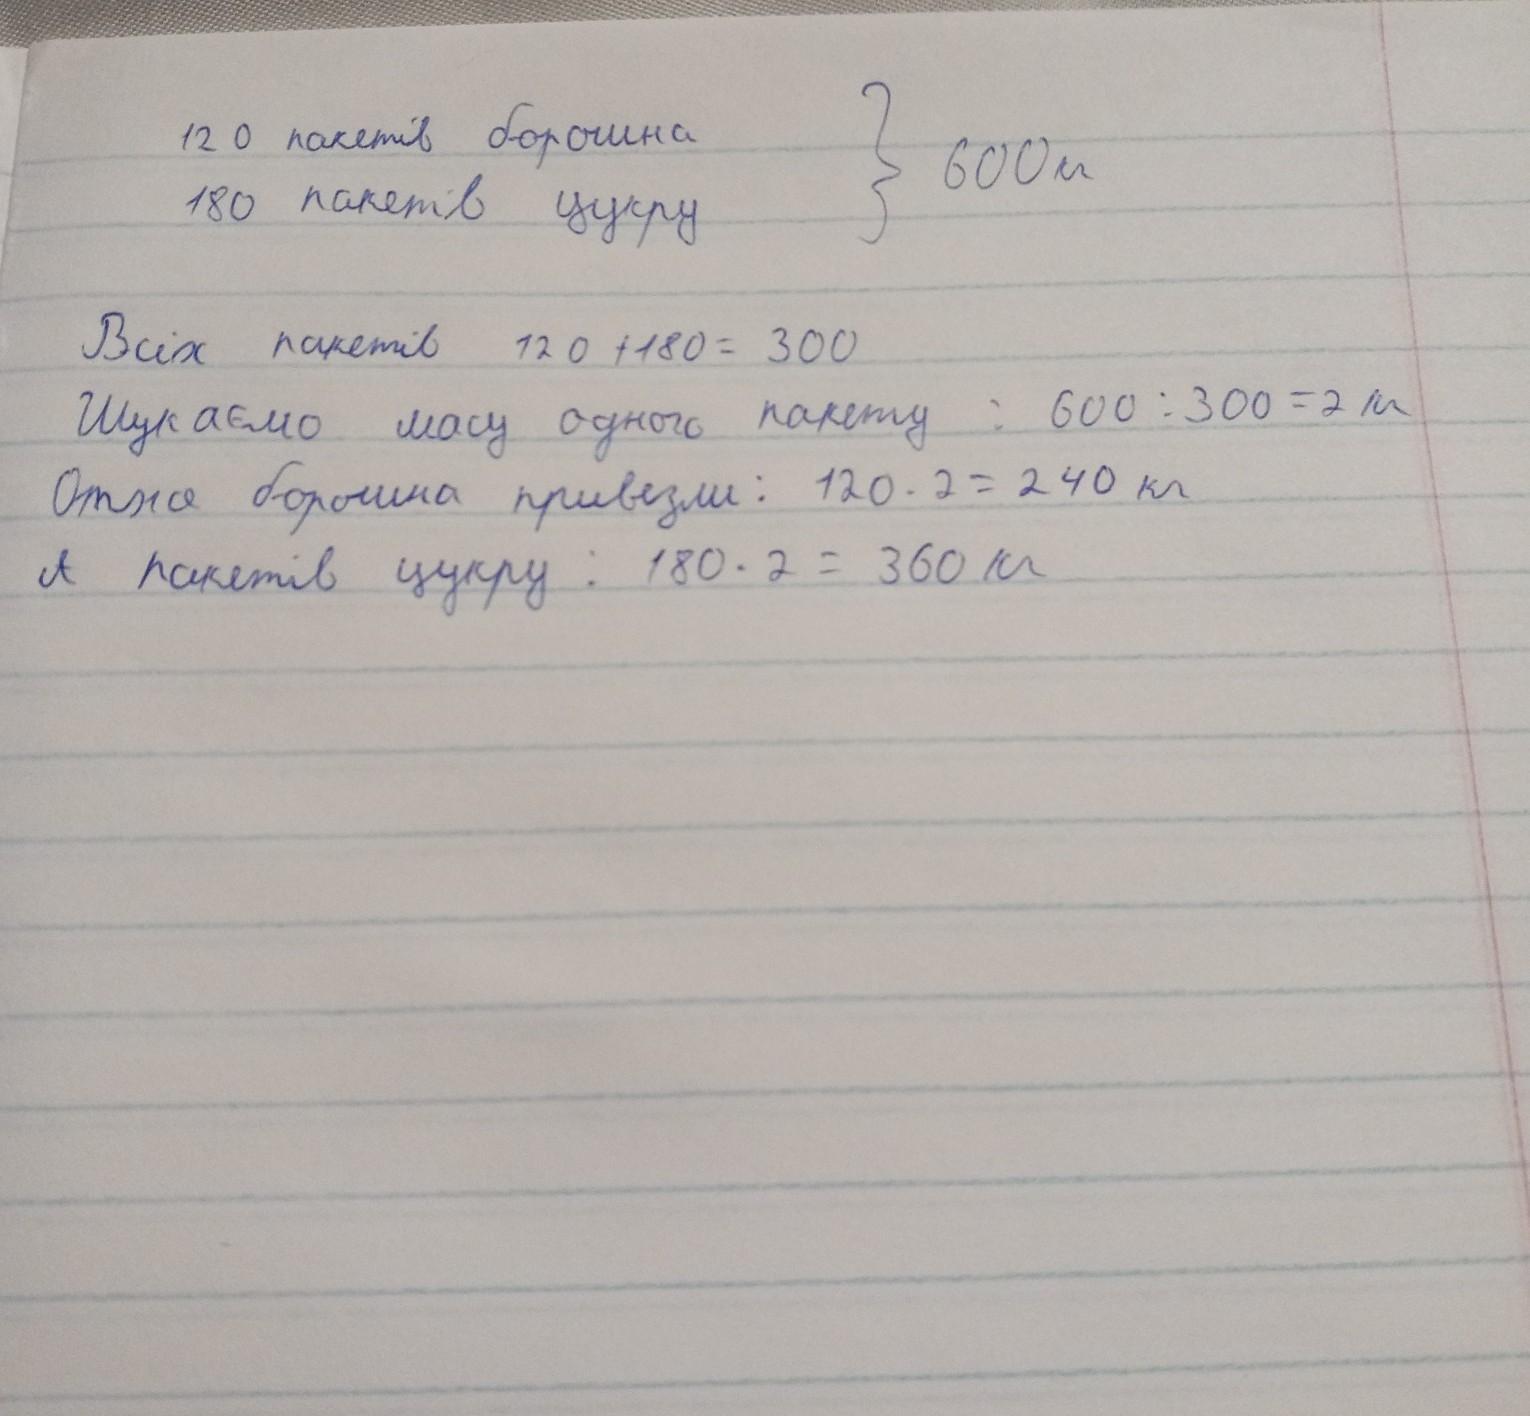 120 пакетів борошна } 600 кг
180 пакетів цукру
Всіх пакетів 120 + 180 = 300
Шукаємо масу одного пакету : 600 : 300 = 2 кг
Отже борошна привезли : 120 · 2 = 240 кг
А пакетів цукру : 180 · 2 = 360 кг